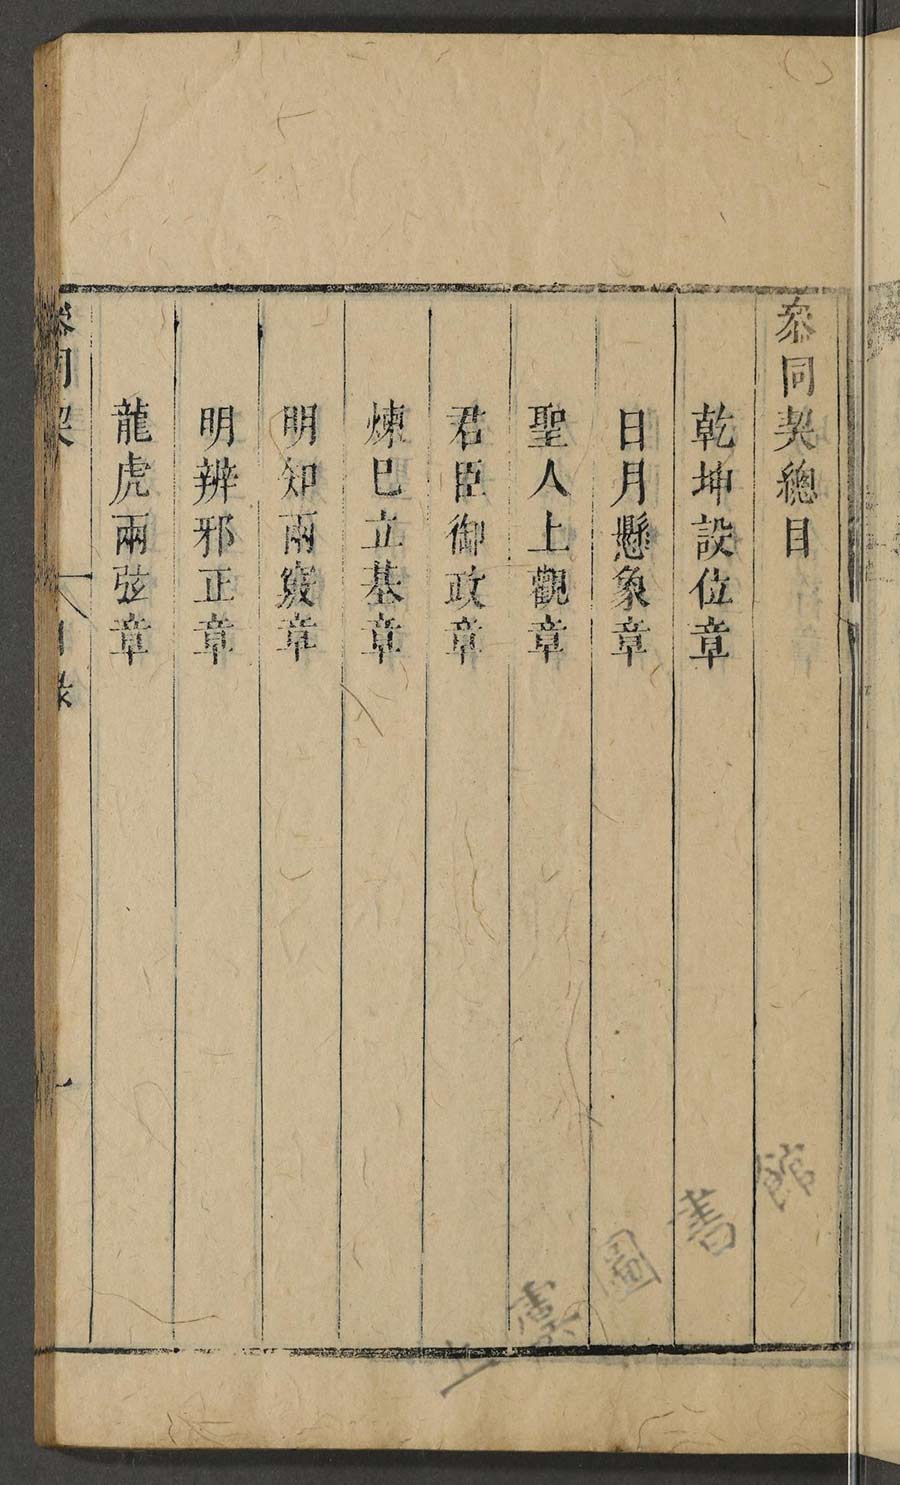 叅同契總目
乾坤設位章
日月懸象章
聖人上觀章
君臣御政章
煉巳立基章
明知兩竅章
明辨邪正章
龍虎兩弦章
叅同契
目錄
一
上虞圖書館